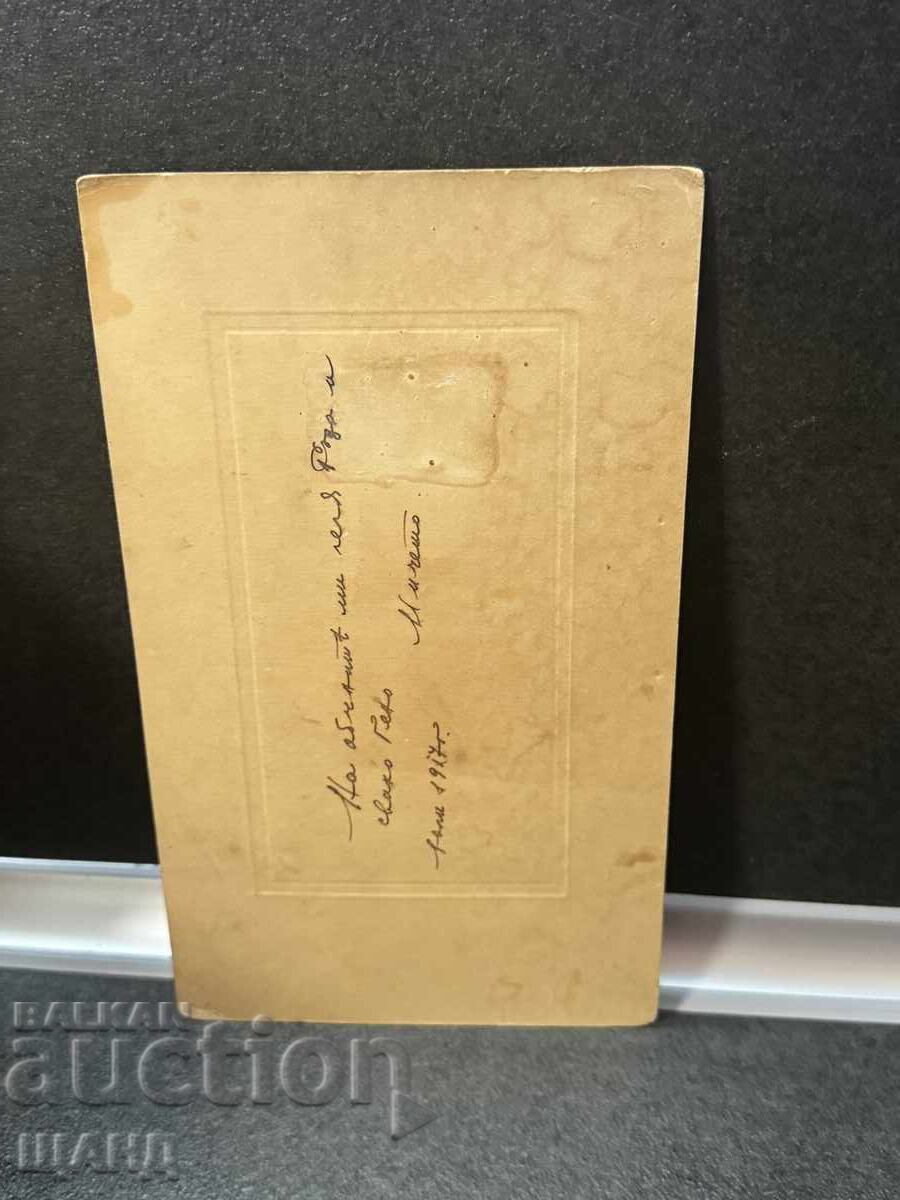 На обичнитѣ ми леля Роза и
свако Геко
Мичето.
юли 1917г.
BALKAN
auction
ШАНД